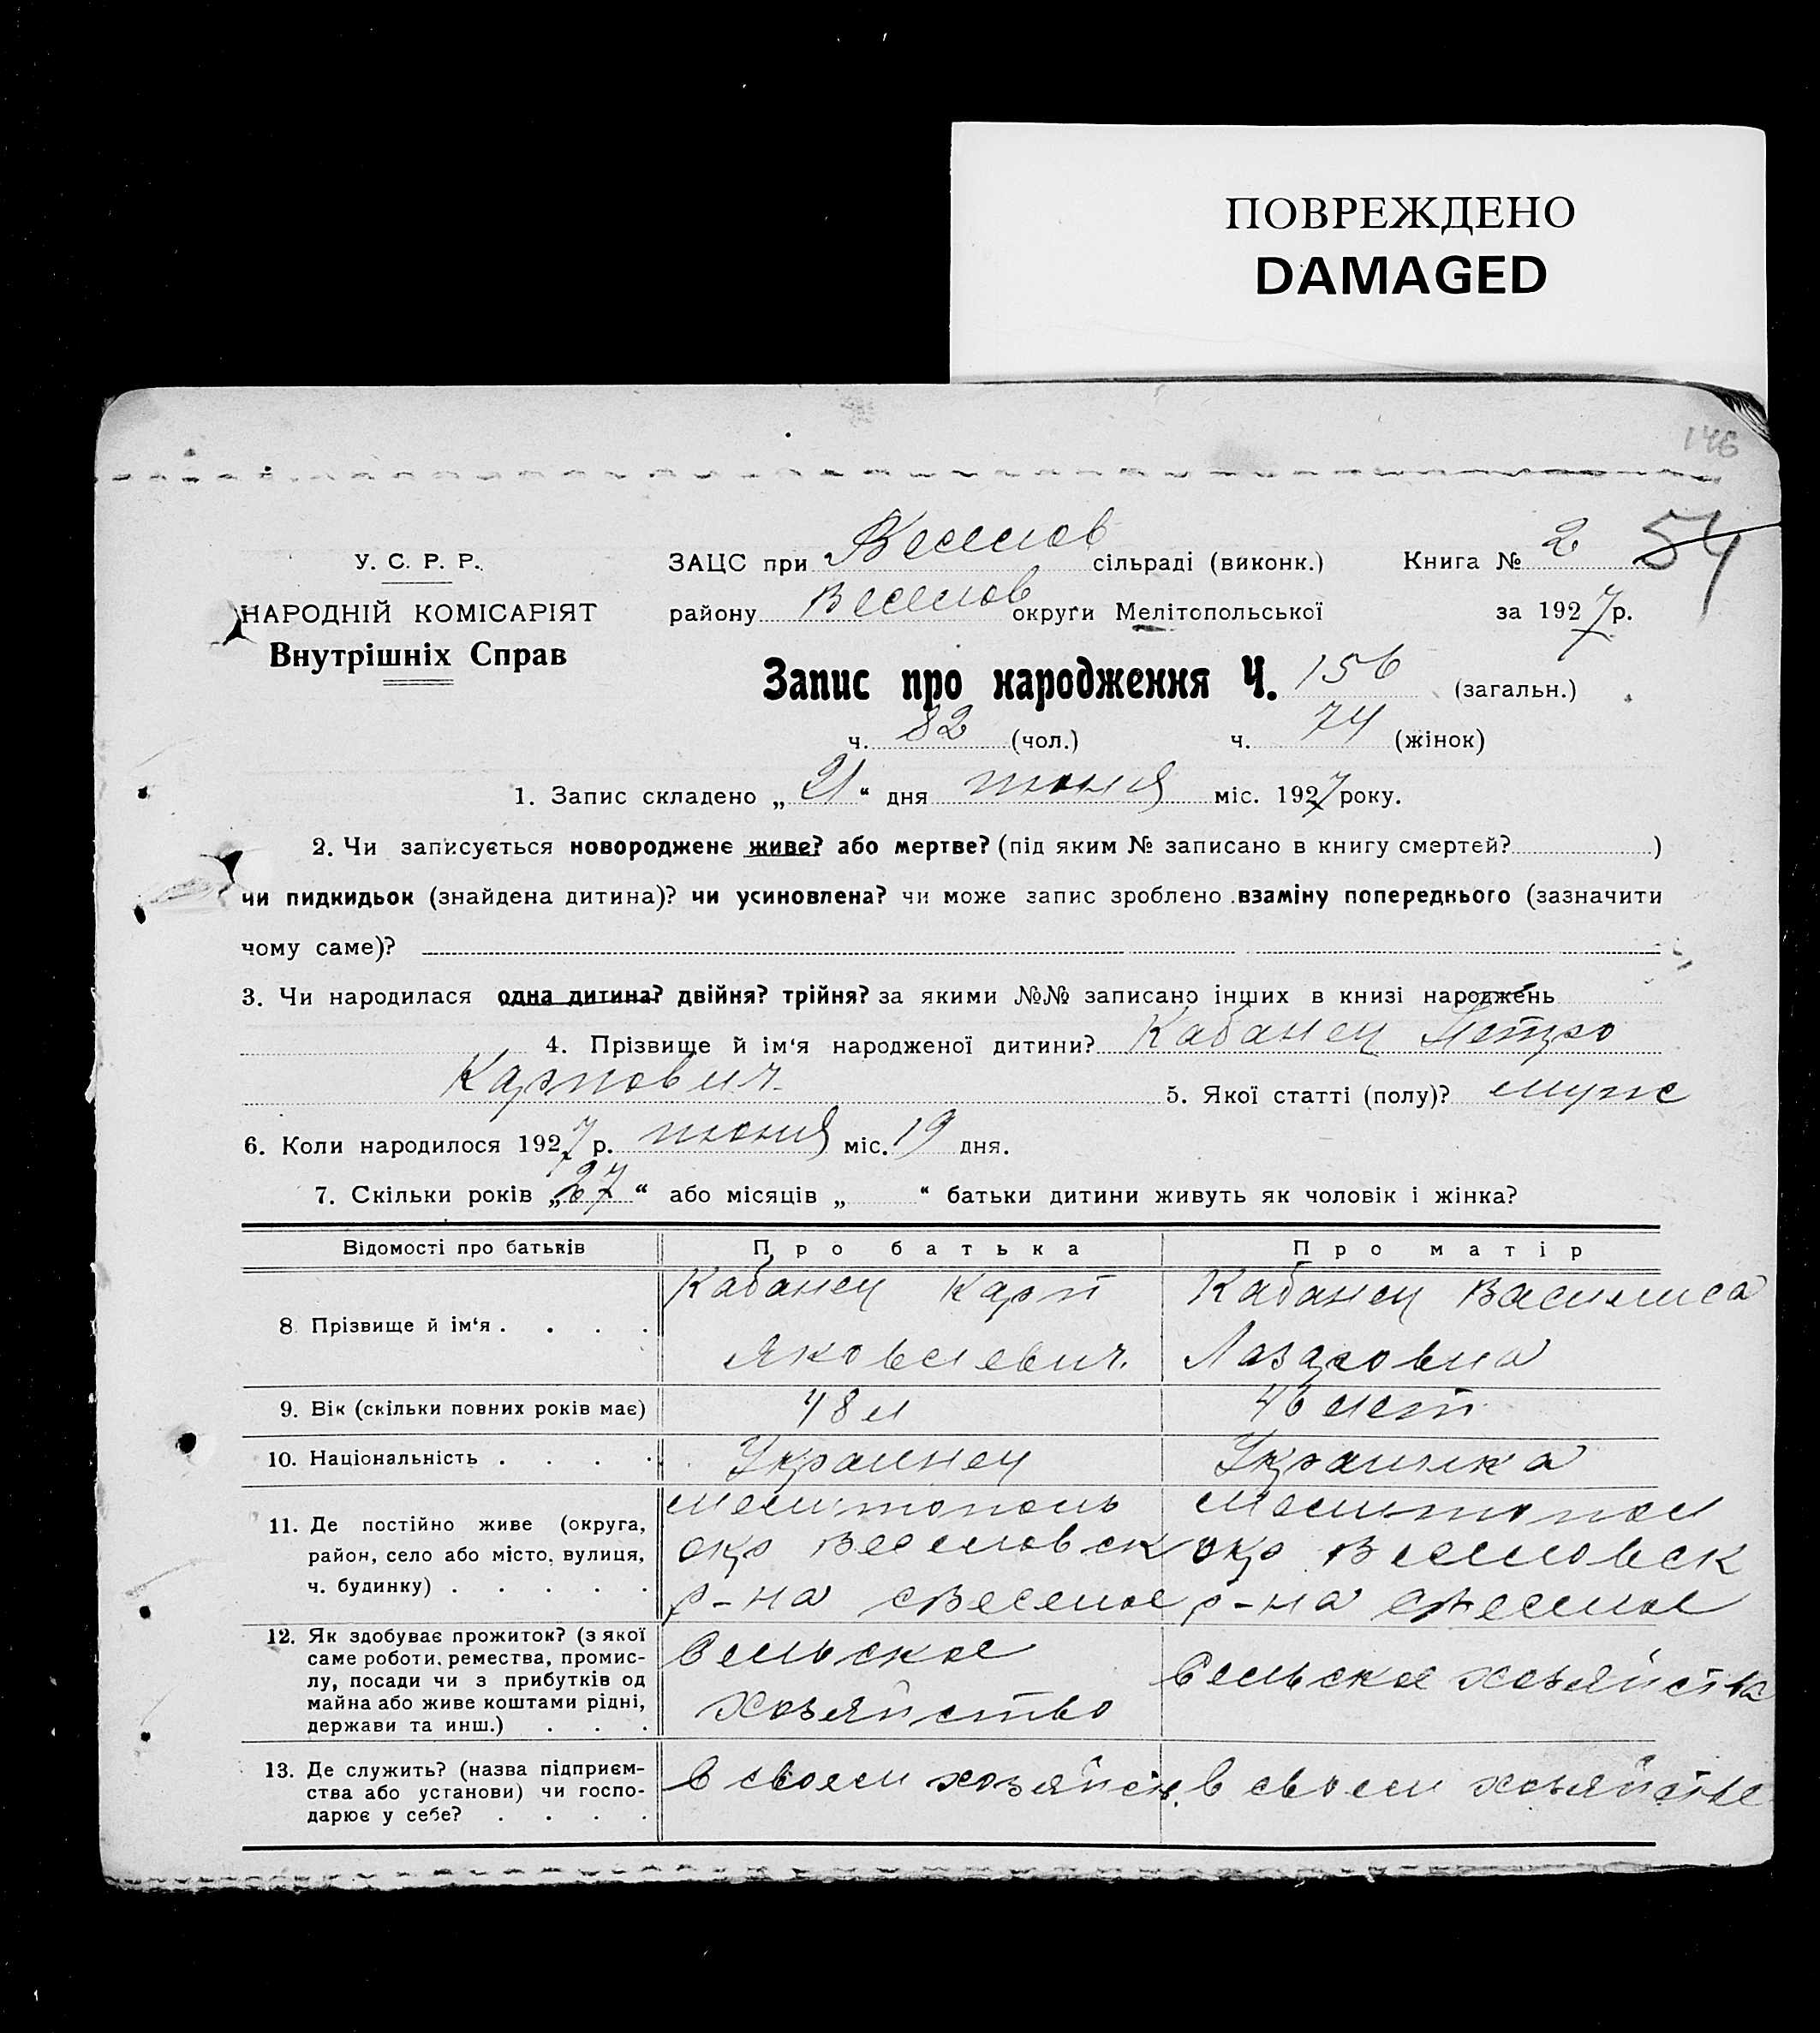 ПОВРЕЖДЕНО
DAMAGED
146
У. С. Р. Р.
НАРОДНІЙ КОМІСАРІЯТ
Внутрішніх Справ
ЗАЦС при Веселов сільраді (виконк.) Книга № 2 54
району Веселов округи Мелітопольської за 1927 р.
Запис про народження Ч. 156 (загальн.)
ч. 82 (чол.) ч. 74 (жінок)
1. Запис складено „21“ дня июня міс. 1927 року.
2. Чи записується новороджене живе? або мертве? (під яким № записано в книгу смертей? )
чи пидкидьок (знайдена дитина)? чи усиновлена? чи може запис зроблено взаміну попереднього (зазначити
чому саме)?
3. Чи народилася одна дитина? двійня? трійня? за якими №№ записано інших в книзі народжень
4. Прізвище й ім‘я народженої дитини? Кабанец Петро
Карпович 5. Якої статті (полу)? муж
6. Коли народилося 1927 р. июня міс. 19 дня.
7. Скільки років „27“ або місяців „ “ батьки дитини живуть як чоловік і жінка?
Відомості про батьків Про батька Про матір
8 Прізвище й ім‘я . . . . Кабанец Карп Кабанец Василиса
Яковлевич. Лазаровна
9. Вік (скільки повних років має) 48 л 46 лет
10. Національність . . . . Украинец Украинка
11. Де постійно живе (округа, Мелитополь Мелитопол
район, село або місто, вулиця, окр Веселовск окр Веселовск
ч. будинку) . . . . . р-на с Веселое р-на с Веселое
12. Як здобуває прожиток? (з якої
саме роботи, ремества, промис- Сельское
лу, посади чи з прибутків од Сельское хозяйств
майна або живе коштами рідні, хозяйство
держави та инш.) . . .
13. Де служить? (назва підприєм-
ства або установи) чи госпо- в своем хозяйств в своем хозяйстве
дарює у себе? . . . .